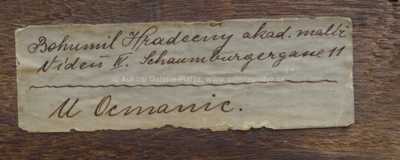 Bohumil Hradečný akad. malíř
Vídeň V. Schaumburgergasse 11
U Ocmanic.